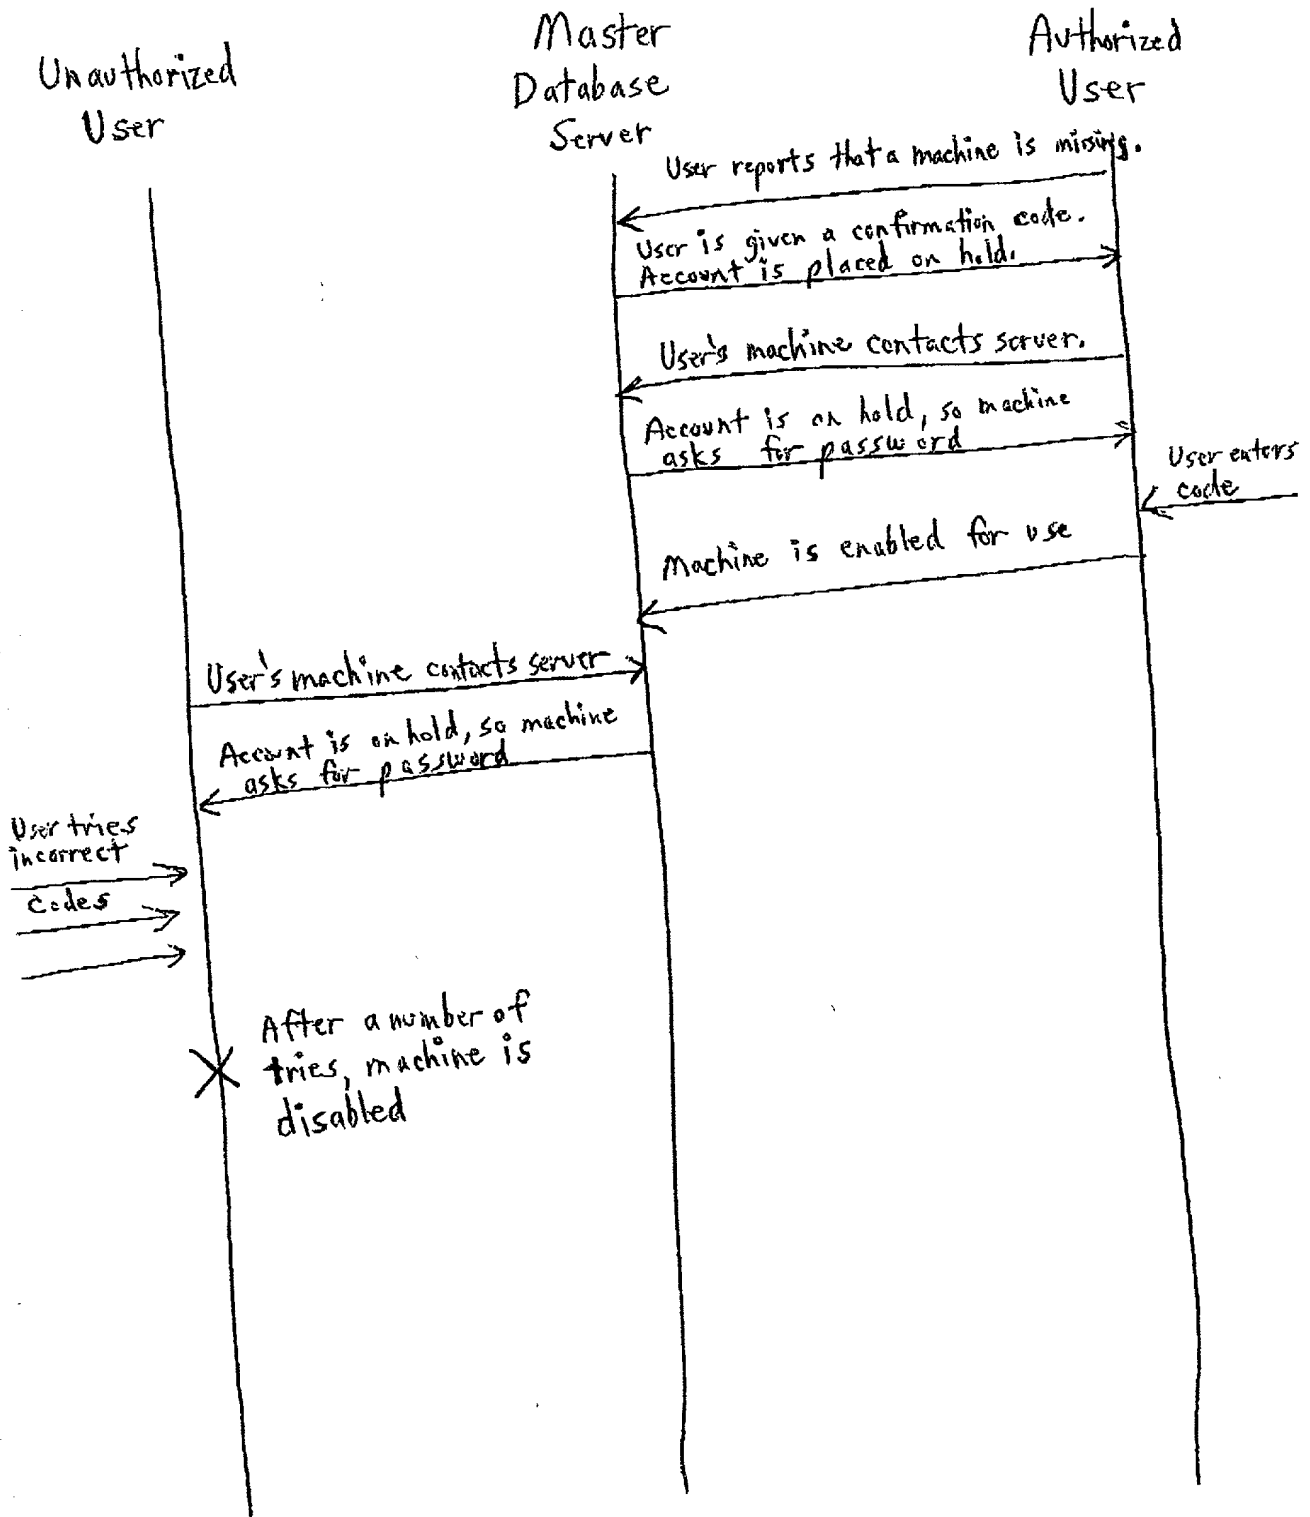 Unauthorized
User
Master
Database
Server
Authorized
User
User reports that a machine is missing.
User is given a confirmation code.
Account is placed on hold.
User's machine contacts server.
Account is on hold, so machine
asks for password
User enters
code
Machine is enabled for use
User's machine contacts server
Account is on hold, so machine
asks for password
User tries
incorrect
codes
After a number of
tries, machine is
disabled